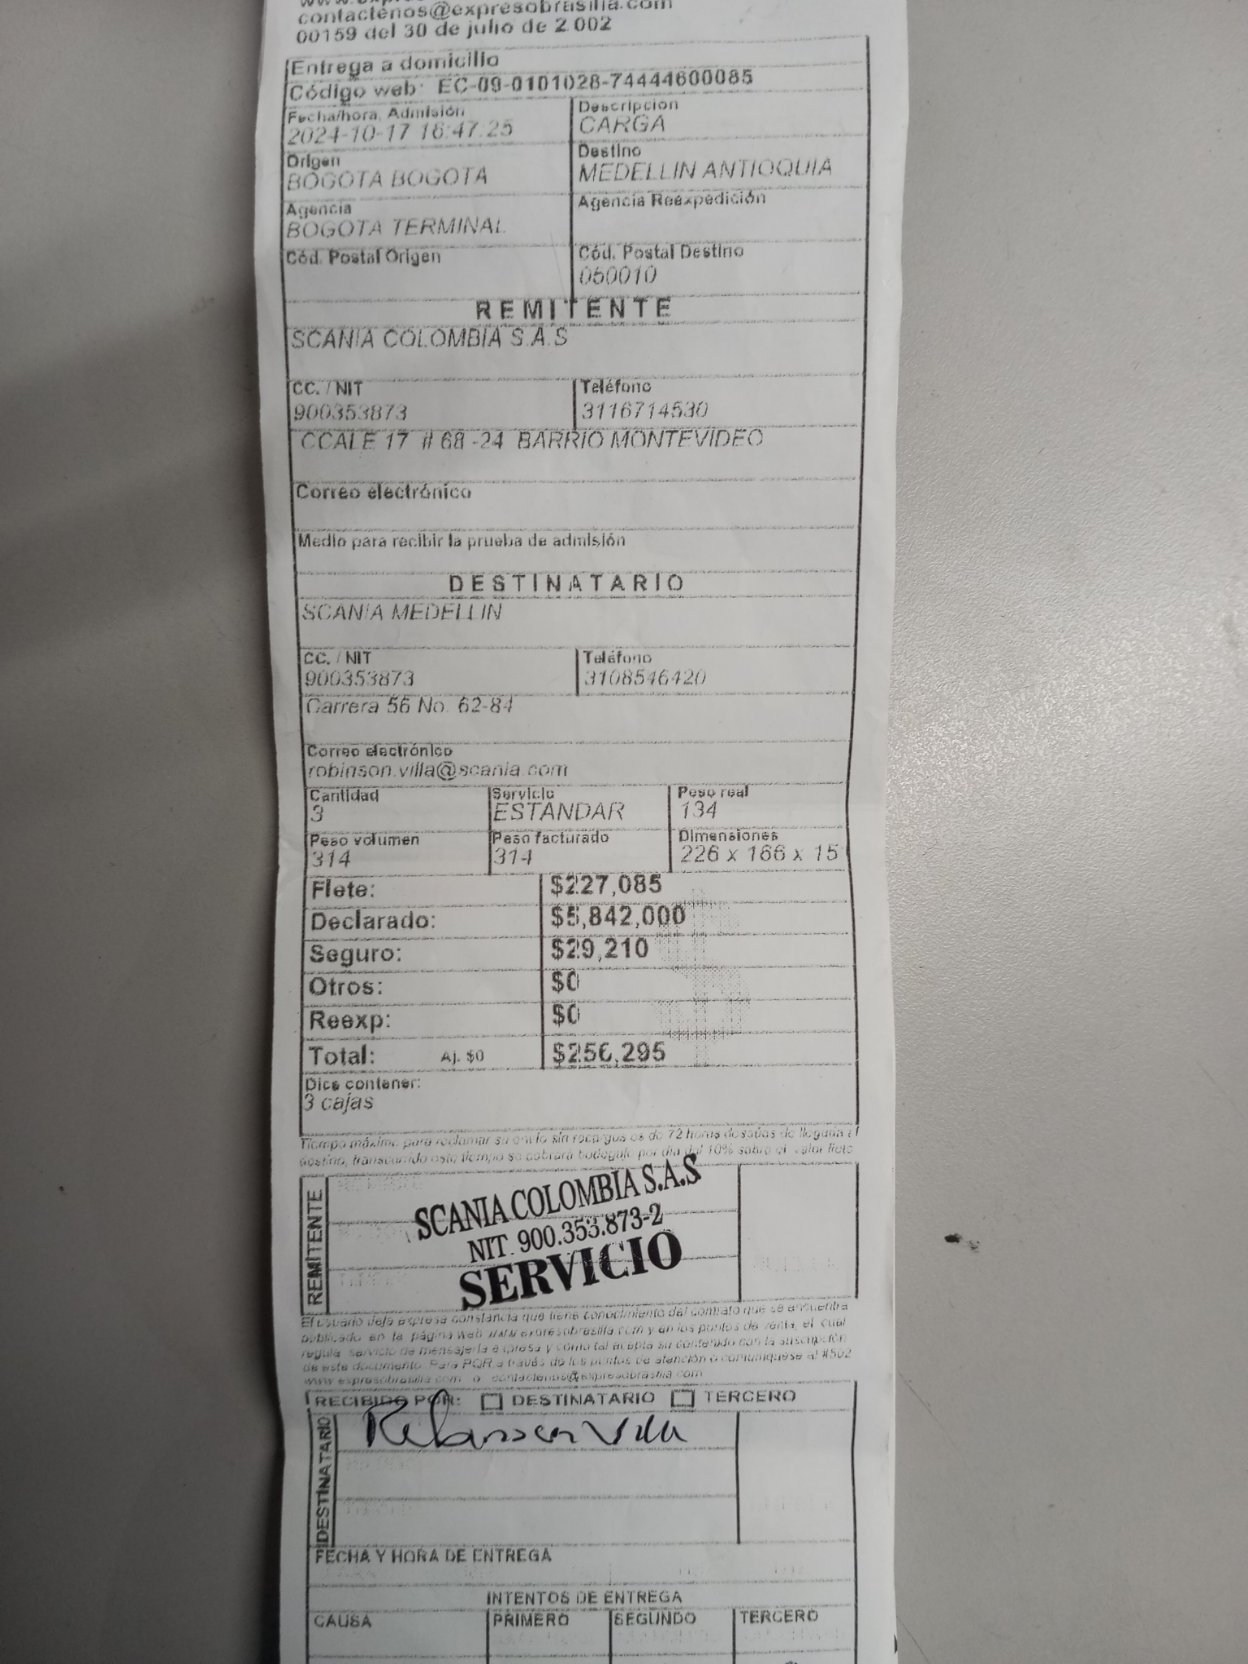 contactenos@expresobrasilia.com
00159 del 30 de julio de 2.002
Entrega a domicilio
Código web: EC-09-0101028-74444600085
Fecha/hora Admisión
2024-10-17 16:47:25
Descripción
CARGA
Origen
BOGOTA BOGOTA
Destino
MEDELLIN ANTIOQUIA
Agencia
BOGOTA TERMINAL
Agencia Reexpedición
Cód. Postal Origen
Cód. Postal Destino
050010
REMITENTE
SCANIA COLOMBIA S.A.S
CC. / NIT
900353873
Teléfono
3116714530
CCALE 17 # 68 -24 BARRIO MONTEVIDEO
Correo electrónico
Medio para recibir la prueba de admisión
DESTINATARIO
SCANIA MEDELLIN
CC. / NIT
900353873
Teléfono
3108546420
Carrera 56 No. 62-84
Correo electrónico
robinson.villa@scania.com
Cantidad
3
Servicio
ESTANDAR
Peso real
134
Peso volumen
314
Peso facturado
314
Dimensiones
226 x 166 x 15
Flete: $227,085
Declarado: $5,842,000
Seguro: $29,210
Otros: $0
Reexp: $0
Total: Aj. $0 $256,295
Dice contener:
3 cajas
Tiempo máximo para reclamar su envío sin recargos es de 72 horas después de llegada al
destino, transcurrido este tiempo se cobrará bodegaje por día del 10% sobre el valor flete
REMITENTE
SCANIA COLOMBIA S.A.S
NIT. 900.353.873-2
SERVICIO
El usuario deja expresa constancia que tiene conocimiento del contrato que se encuentra
publicado en la página web www.expresobrasilia.com y en los puntos de venta, el cual
regula servicio de mensajería expresa y como tal acepta su contenido con la suscripción
de este documento. Para PQR a través de los puntos de atención o comuníquese al #502
www.expresobrasilia.com o contactenos@expresobrasilia.com
RECIBIDO POR: DESTINATARIO TERCERO
DESTINATARIO
Robinson Villa
FECHA Y HORA DE ENTREGA
INTENTOS DE ENTREGA
CAUSA PRIMERO SEGUNDO TERCERO